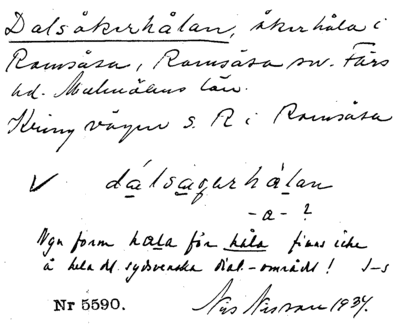 Dalsåkerhålan, åkerhåla i
Ramsåsa, Ramsåsa sn. Färs
hd. Malmöhus län.
Kring vägen s. R i Ramsåsa
✓ dálsaqerhàlan
-a- ?
Ngn form hala för håla finns icke
å hela det sydsvenska dial.-området! J-s
Nr 5590. Nils Nilsson 1934.